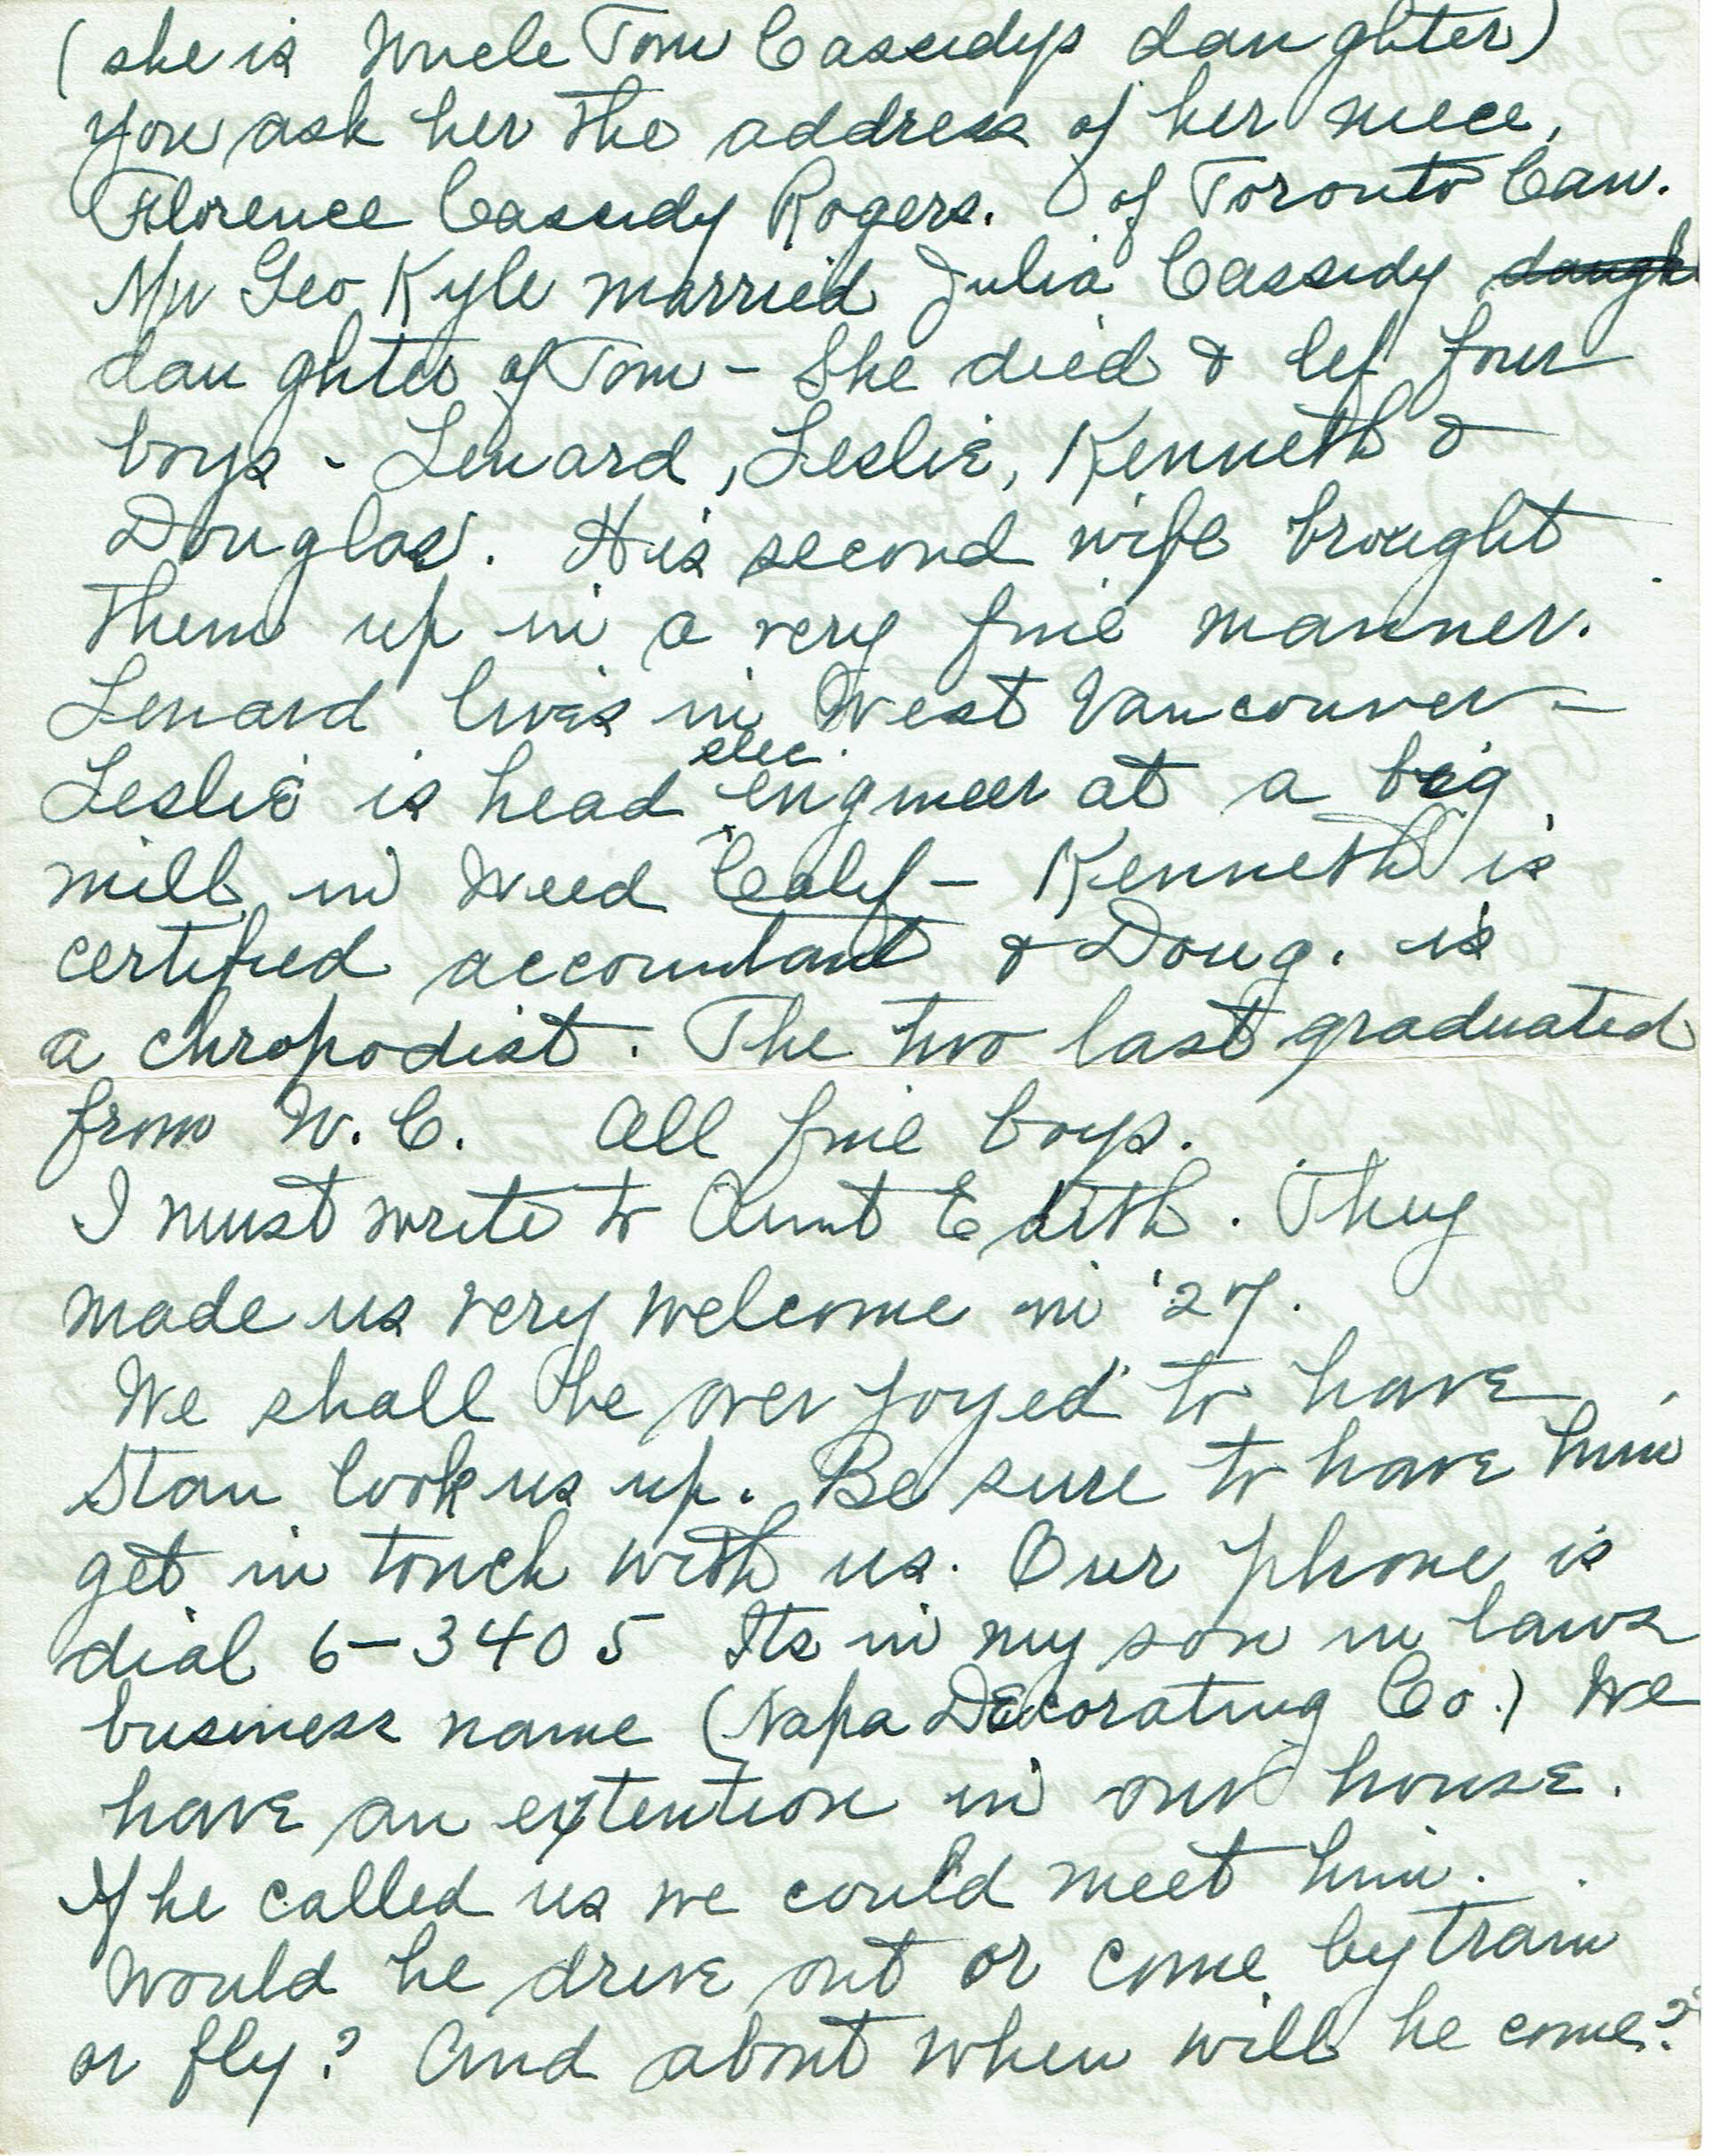 (she is Uncle Tom Cassidys daughter)
you ask her the address of her niece,
Florence Cassidy Rogers. of Toronto Can.
Mr Geo Kyle married Julia Cassidy daugh
daughter of Tom - She died & lef four
boys - Lenard, Leslie, Kenneth &
Douglas. His second wife brought
them up in a very fine manner.
Lenard lives in West Vancouver -
elec.
Leslie is head engineer at a big
mill in Weed Calif - Kenneth is
certified accountant & Doug. is
a chropodist. The two last graduated
from W. C. All fine boys.
I must write to Aunt Edith. They
made us very welcome in '27.
We shall be over joyed to have
Stan look us up. Be sure to have him
get in touch with us. Our phone is
dial 6-3405 Its in my son in laws
business name (Napa Decorating Co.) We
have an extention in our house.
If he called us we could meet him.
Would he drive out or come by train
or fly? And about when will he come?